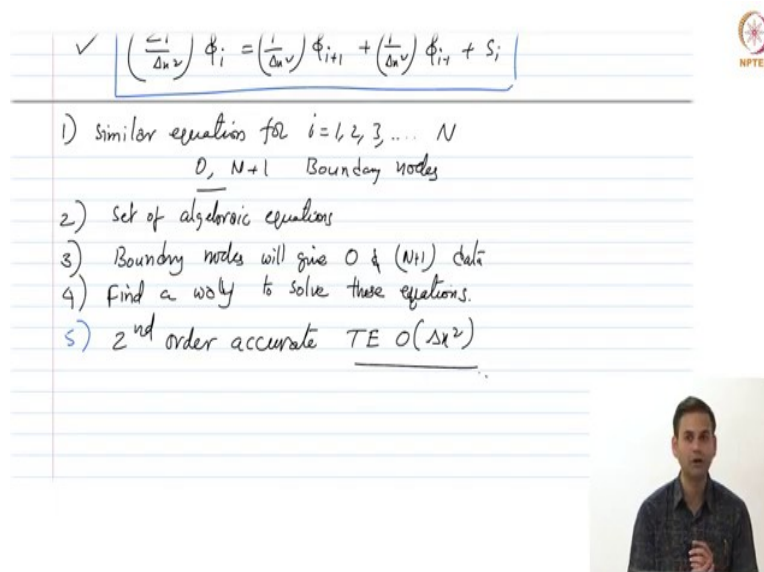 ✓ (2Γ/Δx²) ϕi = (Γ/Δx²) ϕi+1 + (Γ/Δx²) ϕi-1 + Si
NPTE
1) Similar equation for i=1, 2, 3, .... N
0, N+1 Boundary nodes
2) Set of algebraic equations
3) Boundry nodes will give 0 & (N+1) data
4) Find a way to solve these equations.
5) 2nd order accurate TE O(Δx²)